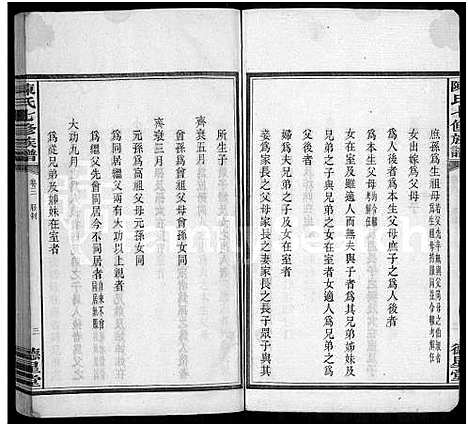 陳氏七修族譜
庶孫為生祖母
女出嫁為父母
為人後者為本生父母庶子之為人後者
為本生父母
女在室及雖適人而無夫與子者為其兄弟姊妹及
兄弟之子與兄弟之女在室者女適人為兄弟之為
父後者
婦為夫兄弟之子及女在室者
妾為家長之父母家長之妻家長之長子眾子與其
所生子
齊衰五月
曾孫為曾祖父母曾孫女同
齊衰三月
元孫為高祖父母元孫女同
為繼父先曾同居今不同居者自來不曾同居無服
為同居繼父兩有大功以上親者
大功九月
為從兄弟及姊妹在室者
陳氏七修族譜
卷二
服制
三
德星堂
德星堂